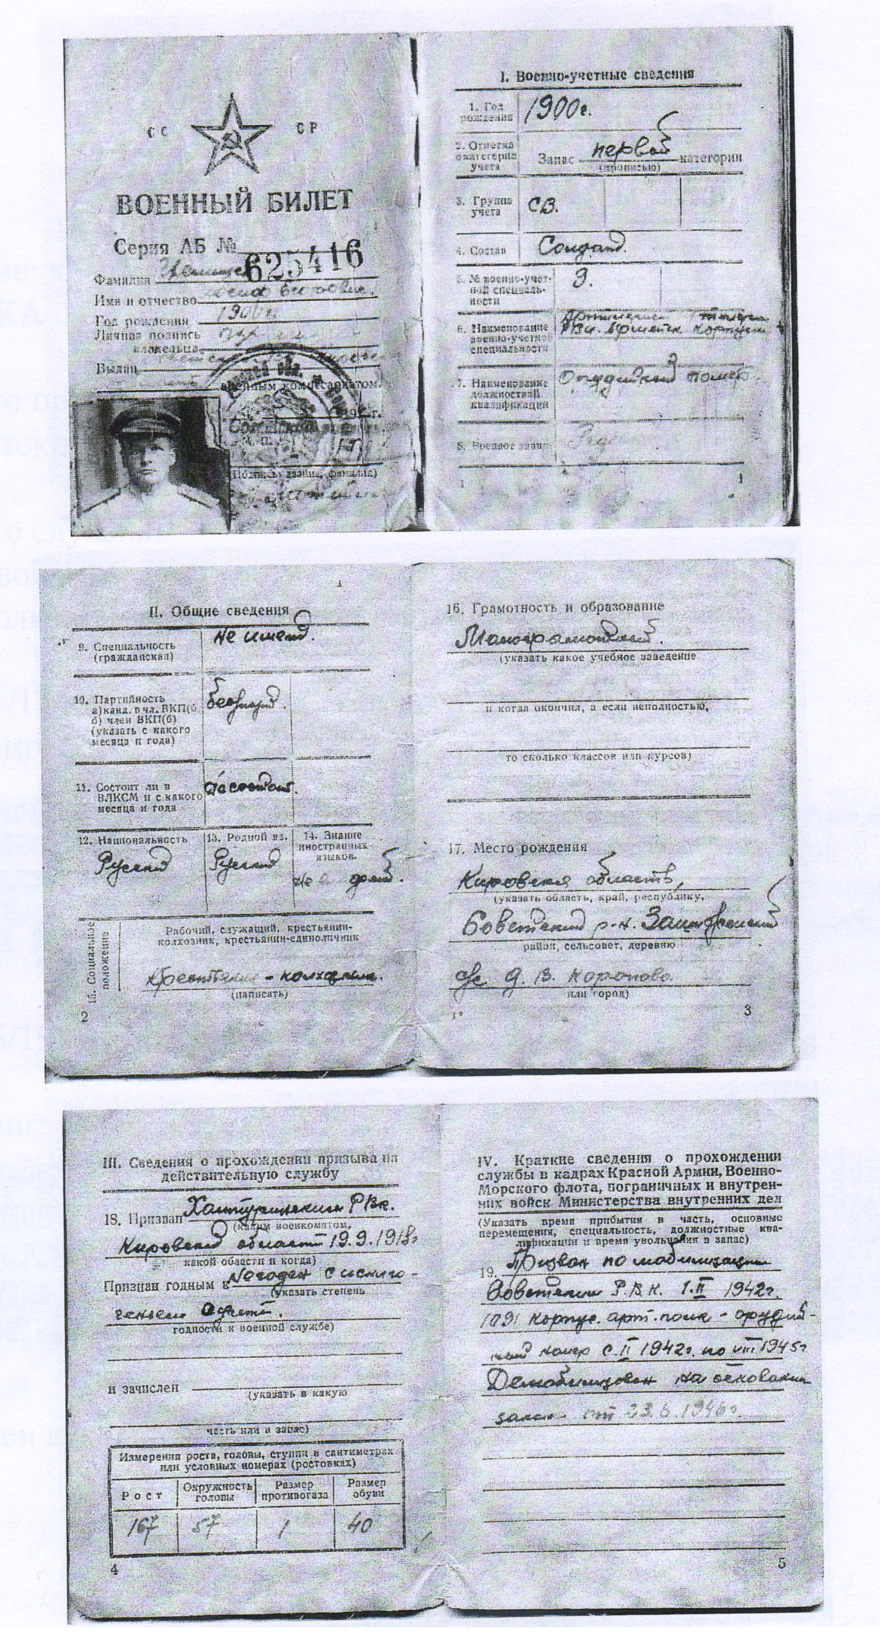 СС СР
ВОЕННЫЙ БИЛЕТ
Серия АБ № 625416
Фамилия
Имя и отчество
Год рождения 1900г.
Личная подпись
владельца
Выдан
военным комиссариатом.
(Подпись, звание, фамилия)
I. Военно-учетные сведения
1. Год рождения 1900г.
2. Отметка о категории учета Запас первой категории
(прописью)
3. Группа учета СВ.
4. Состав Солдат.
5. № военно-учетной специальности 9.
6. Наименование военно-учетной специальности
7. Наименование должностной квалификации Орудийный номер.
8. Военное звание
1
II. Общие сведения
9. Специальность (гражданская) Не имеет.
10. Партийность
а) канд. в чл. ВКП(б)
б) член ВКП(б)
(указать с какого
месяца и года)
беспарт.
11. Состоит ли в
ВЛКСМ и с какого
месяца и года
Не состоит.
12. Национальность Русский
13. Родной яз. Русский
14. Знание иностранных языков.
15. Социальное положение
Рабочий, служащий, крестьянин-
колхозник, крестьянин-единоличник
Крестьянин - колхозник.
(написать)
2
16. Грамотность и образование
Малограмотный.
(указать какое учебное заведение
и когда окончил, а если неполностью,
то сколько классов или курсов)
17. Место рождения
Кировская область,
(указать область, край, республику,
Советский р-н.
район, сельсовет, деревню
с/с д. В.
или город)
1*
3
III. Сведения о прохождении призыва на
действительную службу
18. Призван Халтуринским РВК.
(каким военкоматом,
Кировской области 19.9.1918г
какой области и когда)
Признан годным к Негоден с исклю-
(указать степень
чением с учета.
годности к военной службе)
и зачислен
(указать в какую
часть или в запас)
Измерения роста, головы, ступни в сантиметрах
или условных номерах (ростовках)
Рост Окружность головы Размер противогаза Размер обуви
167 57 1 40
4
IV. Краткие сведения о прохождении
службы в кадрах Красной Армии, Военно-
Морского флота, пограничных и внутрен-
них войск Министерства внутренних дел
(Указать время прибытия в часть, основные
перемещения, специальность, должностные ква-
лификации и время увольнения в запас)
19. Призван по мобилизации
Советским Р.В.К. 1.II 1942г.
корпус. арт. полк - орудий-
ный номер с II 1942г. по VIII 1945г
Демобилизован на основании
5